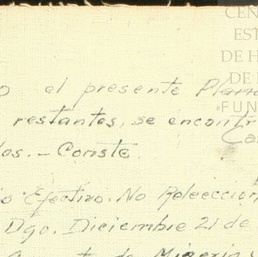 CEN
EST
DE H
DE
FUN
Ca
o al presente Plan
restantes, se encontr
dos. - Conste.
io Efectivo. No Releeccion
Dgo. Diciembre 21 de
de Minería